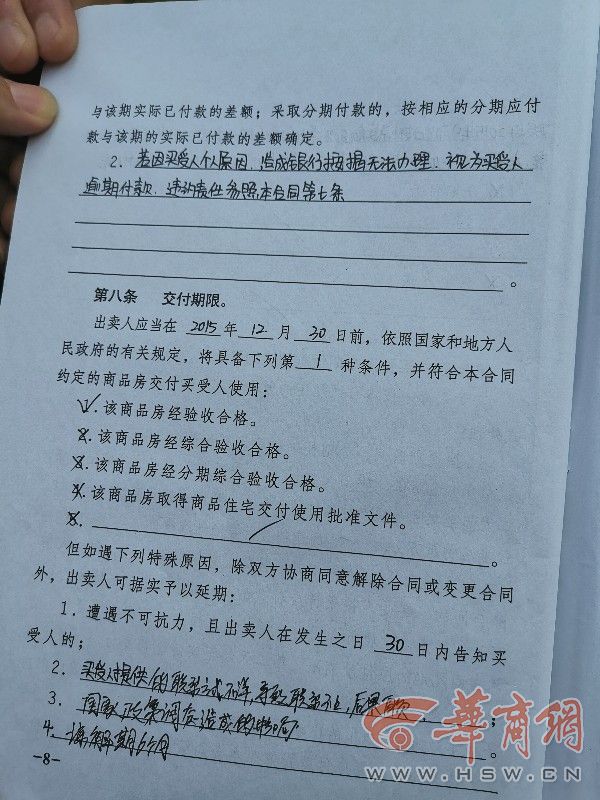 与该期实际已付款的差额；采取分期付款的，按相应的分期应付
款与该期的实际已付款的差额确定。
2. 若因买受人个人原因，造成银行按揭无法办理，视为买受人
逾期付款，违约责任参照本合同第七条
。
第八条 交付期限。
出卖人应当在 2015 年 12 月 30 日前，依照国家和地方人
民政府的有关规定，将具备下列第 1 种条件，并符合本合同
约定的商品房交付买受人使用：
1. 该商品房经验收合格。
2. 该商品房经综合验收合格。
3. 该商品房经分期综合验收合格。
4. 该商品房取得商品住宅交付使用批准文件。
5. 。
但如遇下列特殊原因，除双方协商同意解除合同或变更合同
外，出卖人可据实予以延期：
1. 遭遇不可抗力，且出卖人在发生之日 30 日内告知买
受人的；
2. 买受人提供的联系方式不详，导致联系不上，后果自负 ；
3. 国家政策调控造成的 ；
4. 。
-8-
華商網
WWW.HSW.CN